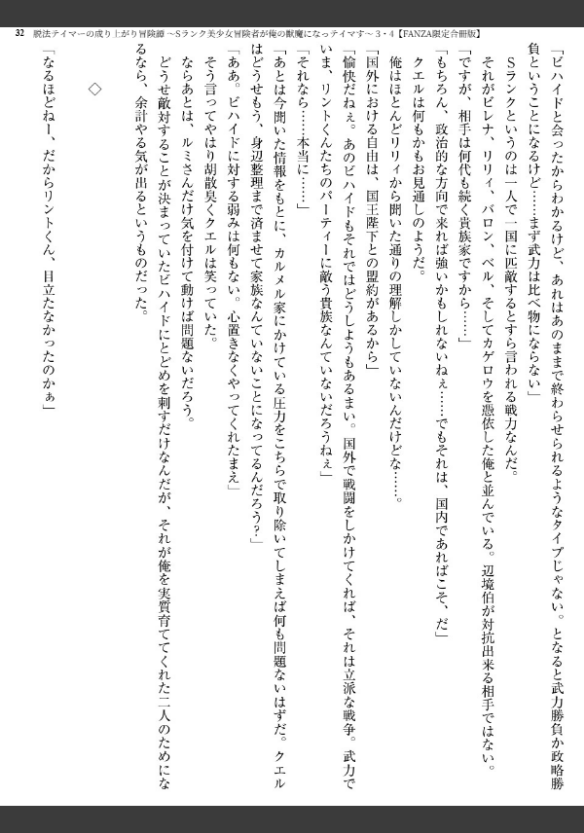 32 脱法テイマーの成り上がり冒険譚 ～Sランク美少女冒険者が俺の獣魔になっテイマす～ 3・4【FANZA限定合冊版】
「ビハイドと会ったからわかるけど、あれはあのままで終わらせられるようなタイプじゃない。となると武力勝負か政略勝
負ということになるけど……まず武力は比べ物にならない」
Sランクというのは一人で一国に匹敵するとすら言われる戦力なんだ。
それがビレナ、リリィ、バロン、ベル、そしてカゲロウを憑依した俺と並んでいる。辺境伯が対抗出来る相手ではない。
「ですが、相手は何代も続く貴族家ですから……」
「もちろん、政治的な方向で来れば強いかもしれないねぇ……でもそれは、国内であればこそ、だ」
クエルは何もかもお見通しのようだ。
俺はほとんどリリィから聞いた通りの理解しかしていないんだけどな……。
「国外における自由は、国王陛下との盟約があるから」
「愉快だねぇ。あのビハイドもそれではどうしようもあるまい。国外で戦闘をしかけてくれば、それは立派な戦争。武力で
いま、リントくんたちのパーティーに敵う貴族なんていないだろうねぇ」
「それなら……本当に……」
「あとは今聞いた情報をもとに、カルメル家にかけている圧力をこちらで取り除いてしまえば何も問題ないはずだ。クエル
はどうせもう、身辺整理まで済ませて家族なんていないことになってるんだろう？」
「ああ。ビハイドに対する弱みは何もない。心置きなくやってくれたまえ」
そう言ってやはり胡散臭くクエルは笑っていた。
ならあとは、ルミさんだけ気を付けて動けば問題ないだろう。
どうせ敵対することが決まっていたビハイドにとどめを刺すだけなんだが、それが俺を実質育ててくれた二人のためにな
るなら、余計やる気が出るというものだった。
◇
「なるほどねー、だからリントくん、目立たなかったのかぁ」